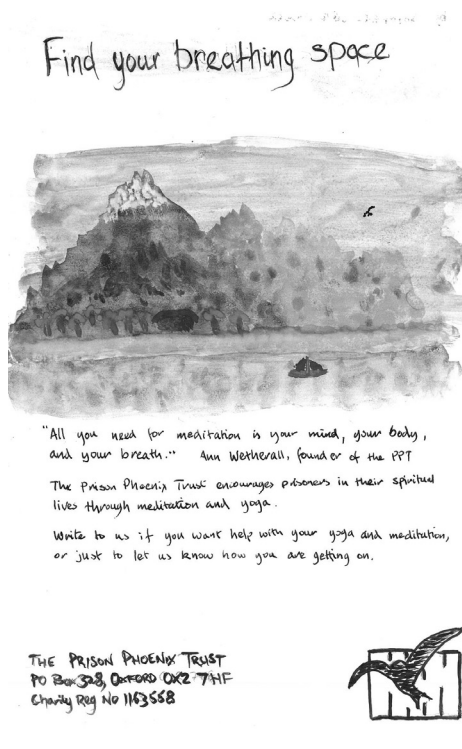 Find your breathing space
"All you need for meditation is your mind, your body,
and your breath." Ann Wetherall, founder of the PPT
The Prison Phoenix Trust encourages prisoners in their spiritual
lives through meditation and yoga.
Write to us if you want help with your yoga and meditation,
or just to let us know how you are getting on.
THE PRISON PHOENIX TRUST
PO Box 328, OXFORD OX2 7HF
Charity Reg No 1163558